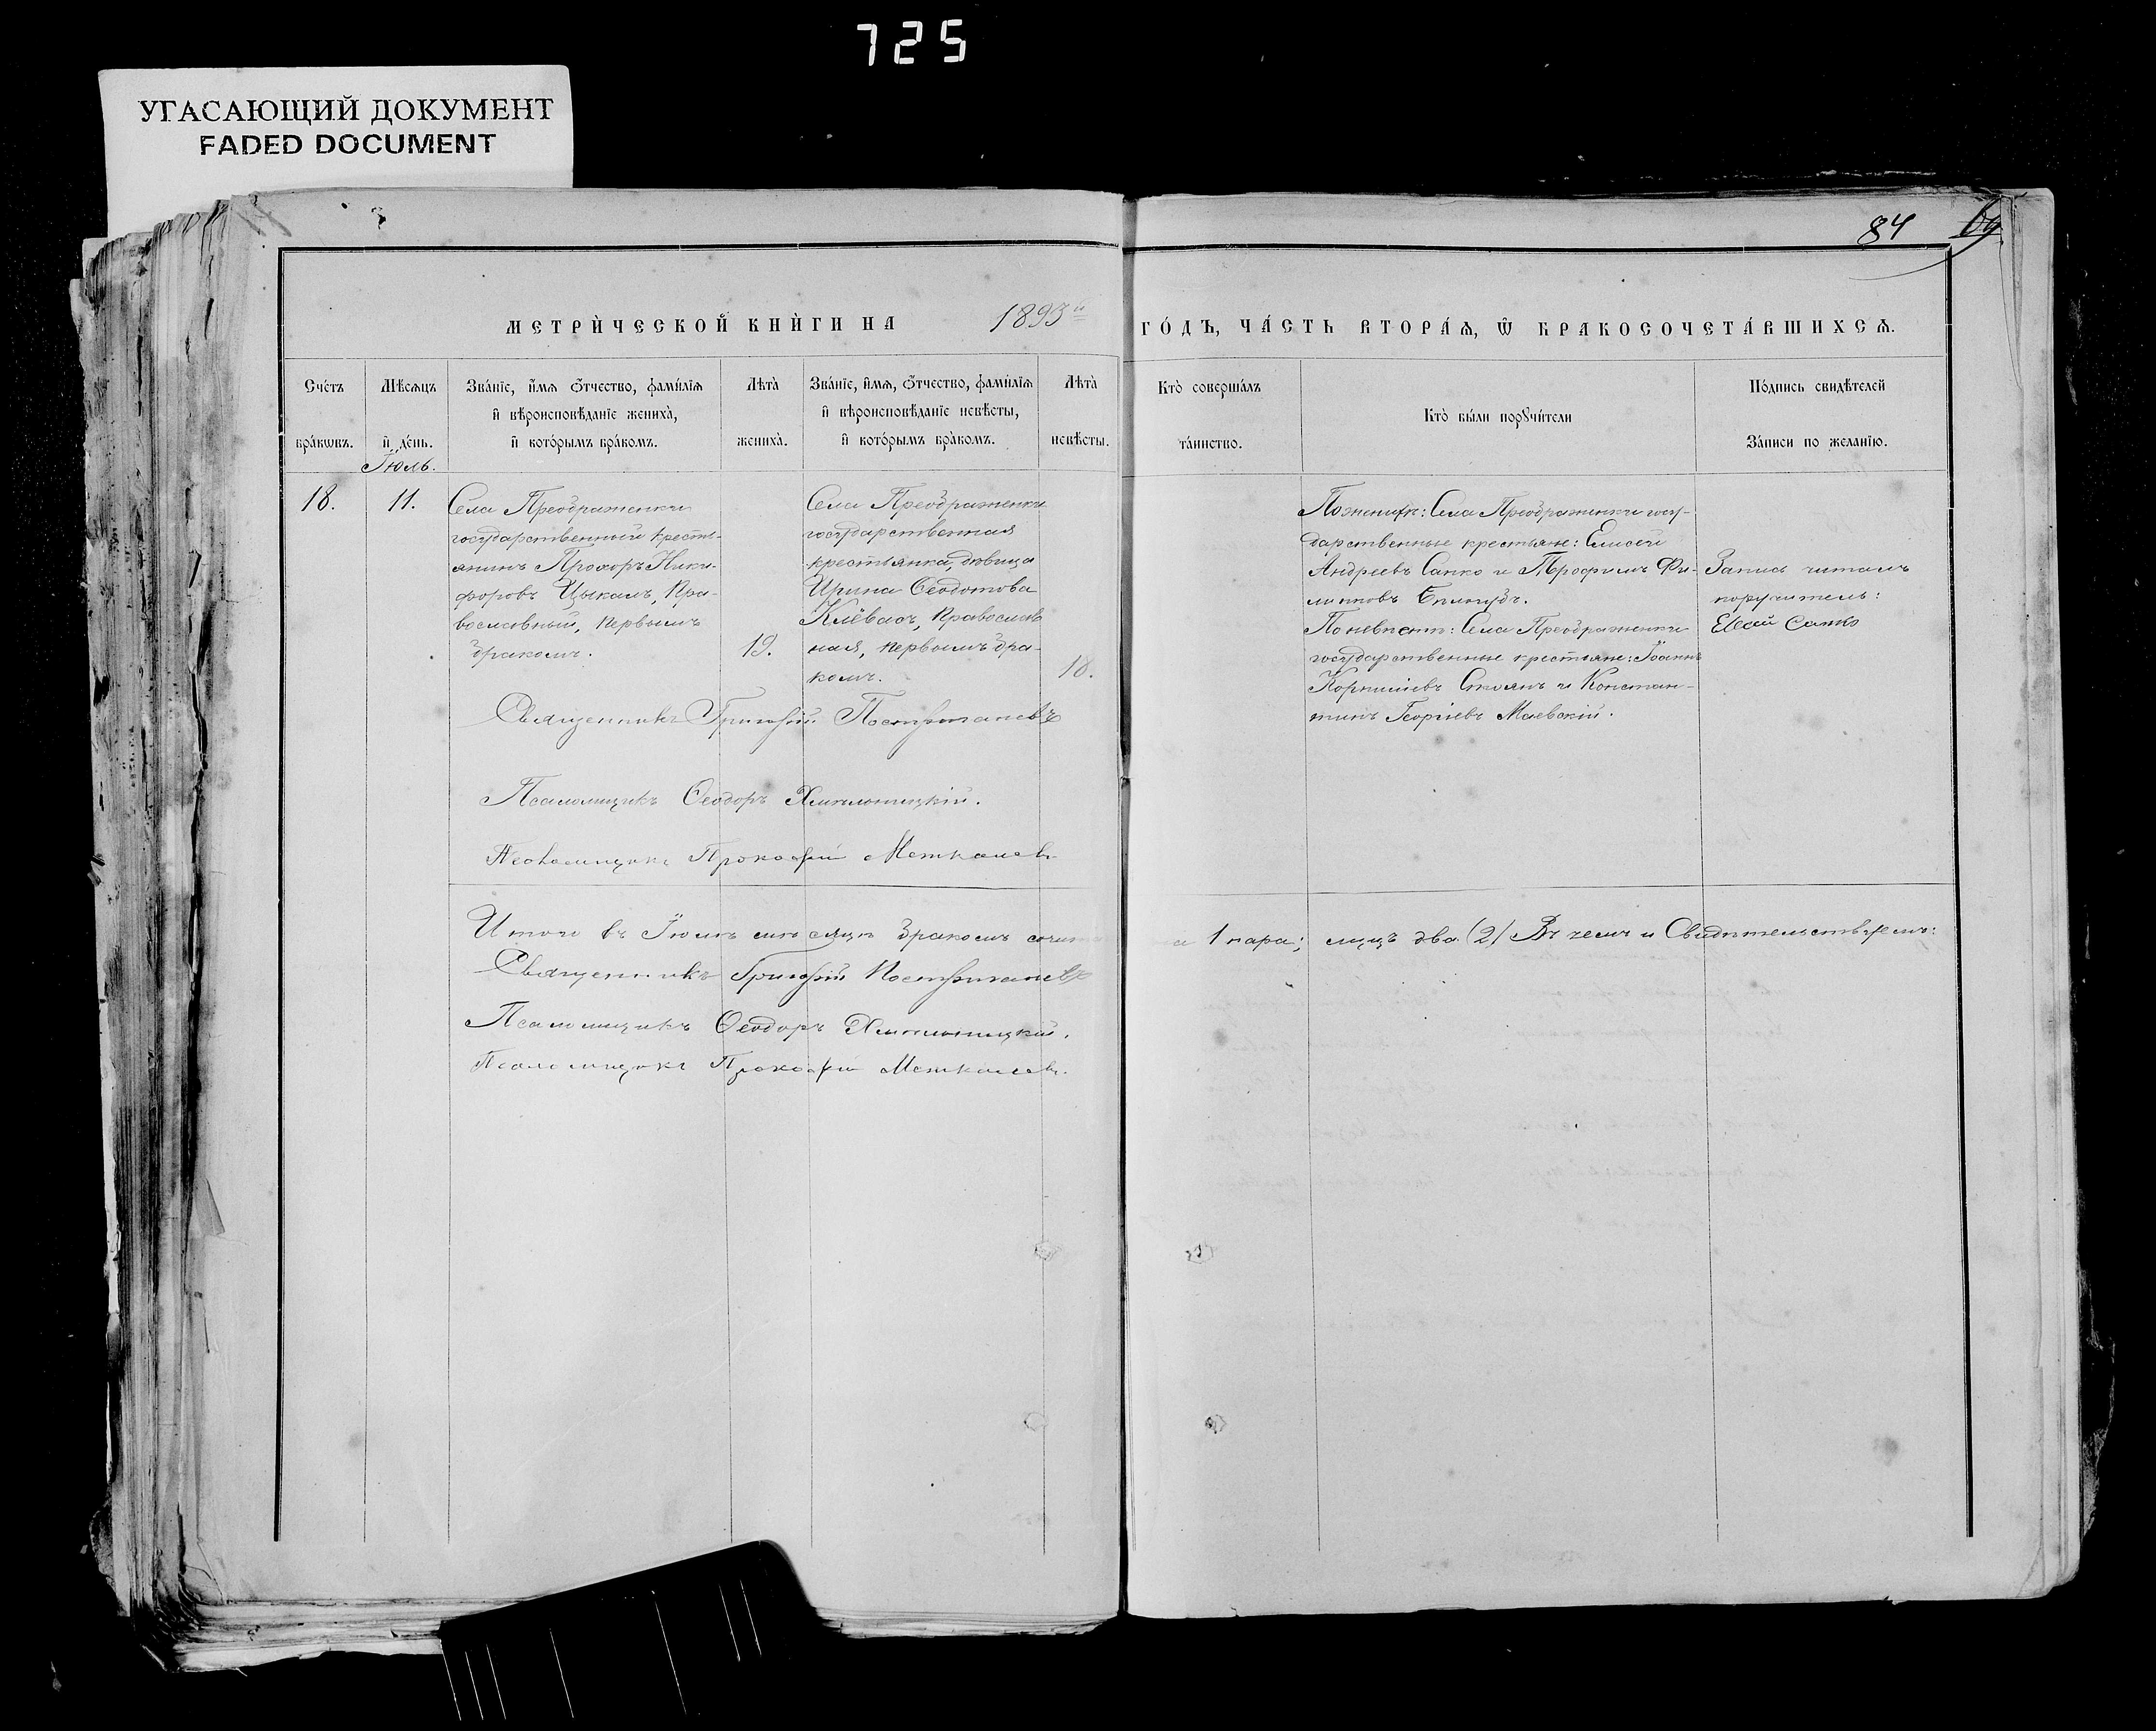 725
УГАСАЮЩИЙ ДОКУМЕНТ
FADED DOCUMENT
84
69
МЕТРИ́ЧЕСКОЙ КНИ́ГИ НА 1893й ГО́ДЪ, ЧА́СТЬ ВТОРА́Ѧ, Ѿ БРАКОСОЧЕТА́ВШИХСѦ.
Сче́тъ бра́кѡвъ.
Мѣсѧцъ и де́нь.
Зва́нїе, и҆́мѧ ѻ҆́тчество, фами́лїѧ
и҆ вѣроисповѣданїе жениха̀,
и҆ кото́рымъ бра́комъ.
Лѣта̀ жениха̀.
Зва́нїе, и҆́мѧ, ѻ҆́тчество, фами́лїѧ
и҆ вѣроисповѣданїе невѣсты,
и҆ кото́рымъ бра́комъ.
Лѣта̀ невѣсты.
Кто̀ соверша́лъ та́инство.
Кто̀ бы́ли порꙋчи́тели
По́дпись свидѣтелей
За́писи по жела́нїю.
Іюль.
18.
11.
Села Преображенки
государственный кресть-
янинъ Прохоръ Ники-
форовъ Цыкалъ, Пра-
вославный, первымъ
бракомъ.
19.
Села Преображенки
государственная
крестьянка, дѣвица
Ирина Ѳеодотова
православ
ная, первымъ бра-
комъ.
18.
По женихѣ: Села Преображенки госу-
дарственные крестьяне: Елисей
Андреевъ Сапко и Трофимъ Фи-
липповъ
По невѣстѣ: Села Преображенки
государственные крестьяне: Іоаннъ
Корниліевъ Стоянъ и Констан-
тинъ Георгіевъ Маевскій.
Запись читалъ
поручитель:
Сапко
Священникъ Григорій
Псаломщикъ Ѳеодоръ Хмѣльницкій.
Псаломщикъ Прокофій
Итого въ Іюлѣ мѣсяцѣ бракомъ 1 пара; лицъ два (2) Въ чемъ и Свидѣтельствуемъ:
Священникъ Григорій
Псаломщикъ Ѳеодоръ Хмѣльницкій.
Псаломщикъ Прокофій